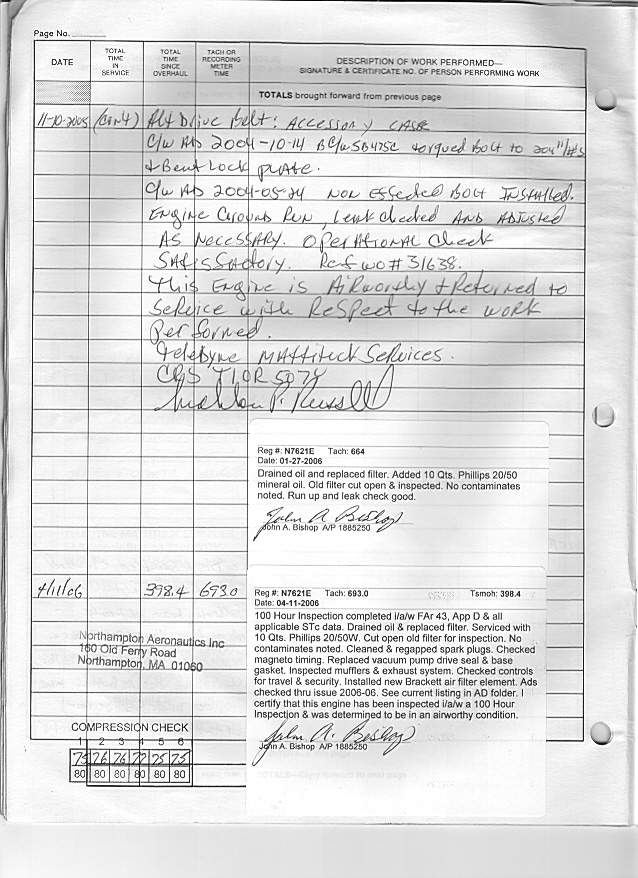 Page No.
DATE
TOTAL TIME IN SERVICE
TOTAL TIME SINCE OVERHAUL
TACH OR RECORDING METER TIME
DESCRIPTION OF WORK PERFORMED—
SIGNATURE & CERTIFICATE NO. OF PERSON PERFORMING WORK
TOTALS brought forward from previous page
11-10-2005 (Cont) Alt Drive Belt: Accessory Case
C/W AD 2004-10-14 BC/W SB475C torqued Bolt to 204"/#s
+ Bent Lock plate.
C/W AD 2004-05-24 Non Effected Bolt Installed.
Engine Ground Run, Leak checked AND Adjusted
AS Necessary. Operational Check
Satisfactory. Ref wo# 31638.
This Engine is Airworthy + Returned to
Service with Respect to the work
Performed.
Teledyne Mattituck Services.
CRS
Reg #: N7621E Tach: 664
Date: 01-27-2006
Drained oil and replaced filter. Added 10 Qts. Phillips 20/50
mineral oil. Old filter cut open & inspected. No contaminates
noted. Run up and leak check good.
John A Bishop
John A. Bishop A/P 1885250
4/11/06 398.4 693.0
Reg #: N7621E Tach: 693.0 Tsmoh: 398.4
Date: 04-11-2006
100 Hour Inspection completed i/a/w FAr 43, App D & all
applicable STc data. Drained oil & replaced filter. Serviced with
10 Qts. Phillips 20/50W. Cut open old filter for inspection. No
contaminates noted. Cleaned & regapped spark plugs. Checked
magneto timing. Replaced vacuum pump drive seal & base
gasket. Inspected mufflers & exhaust system. Checked controls
for travel & security. Installed new Brackett air filter element. Ads
checked thru issue 2006-06. See current listing in AD folder. I
certify that this engine has been inspected i/a/w a 100 Hour
Inspection & was determined to be in an airworthy condition.
John A. Bishop
John A. Bishop A/P 1885250
Northampton Aeronautics Inc
160 Old Ferry Road
Northampton, MA 01060
COMPRESSION CHECK
1 2 3 4 5 6
75 76 76 77 75 75
80 80 80 80 80 80